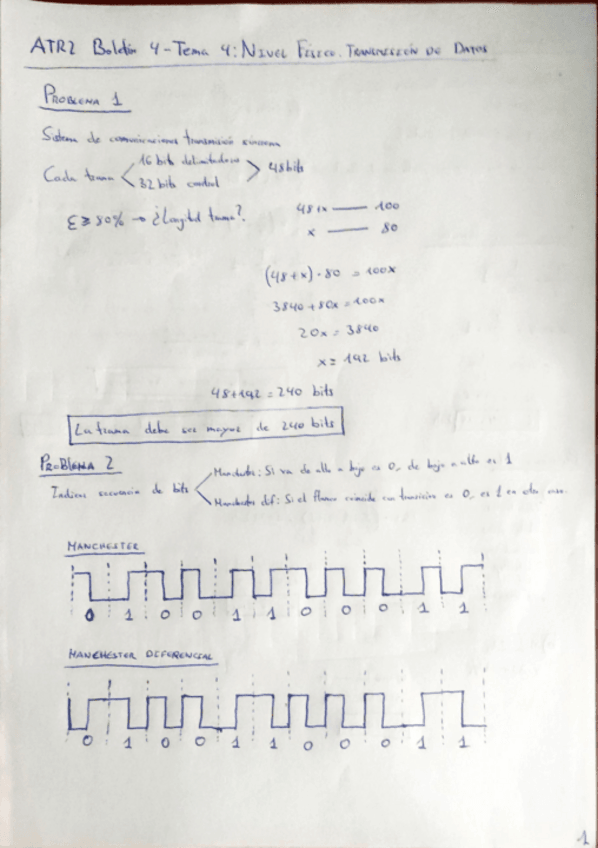 ATR2 Boletín 4 - Tema 4: NIVEL FÍSICO. TRANSMISIÓN DE DATOS
PROBLEMA 1
Sistema de comunicaciones transmisión síncrona
Cada trama < 16 bits delimitadores
32 bits control > 48 bits
ε ≥ 80% → ¿Longitud trama?
48+x — 100
x — 80
(48+x)·80 = 100x
3840+80x = 100x
20x = 3840
x = 192 bits
48+192 = 240 bits
La trama debe ser mayor de 240 bits
PROBLEMA 2
Indicar secuencia de bits
Manchester: Si va de alto a bajo es 0, de bajo a alto es 1
Manchester dif: Si el flanco coincide con transición es 0, es 1 en otro caso.
MANCHESTER
0 1 0 0 1 1 0 0 0 1 1
MANCHESTER DIFERENCIAL
0 1 0 0 1 1 0 0 0 1 1
1